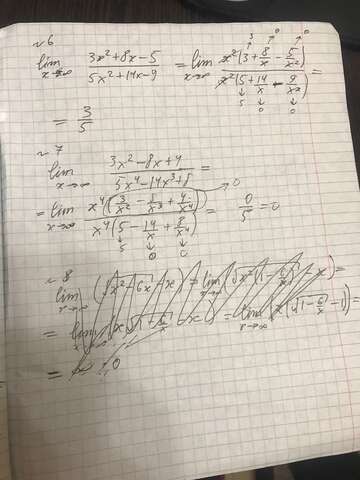 ~6
lim x→∞ (3x²+8x-5)/(5x²+14x-9) = lim x→∞ x²(3+8/x-5/x²)/x²(5+14/x-9/x²) =
= 3/5
~7
lim x→∞ (3x²-8x+4)/(5x⁴-14x³+8) =
= lim x→∞ x⁴(3/x²-8/x³+4/x⁴)/x⁴(5-14/x+8/x⁴) = 0/5 = 0
~8
lim x→∞ (√x²-6x - x) = lim x→∞
= lim = lim x→∞ x(√1-6/x -1) =
=